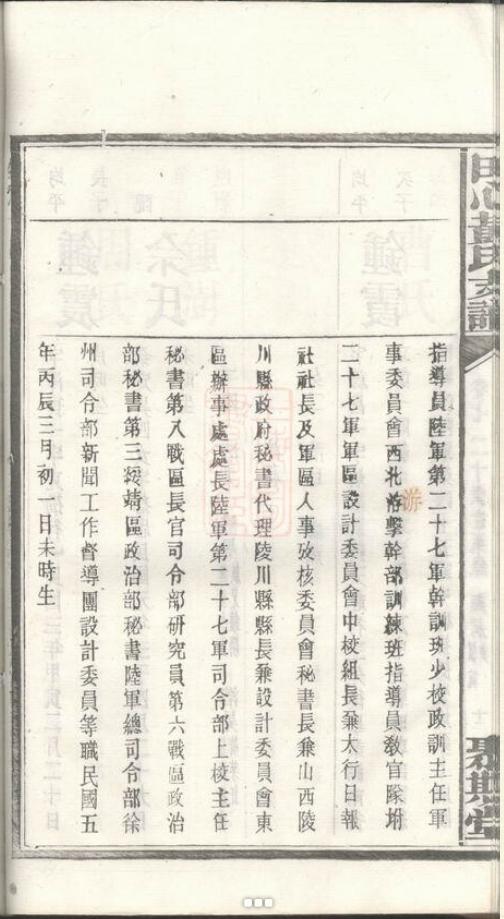 黃氏支譜
指導員陸軍第二十七軍幹訓班少校政訓主任軍
事委員會西北游擊幹部訓練班指導員敎官隊坿
二十七軍軍區設計委員會中校組長兼太行日報
社社長及軍區人事攷核委員會秘書長兼山西陵
川縣政府秘書代理陵川縣縣長兼設計委員會東
區辦事處處長陸軍第二十七軍司令部上校主任
秘書第八戰區長官司令部研究員第六戰區政治
部秘書第三綏靖區政治部秘書陸軍總司令部徐
州司令部新聞工作督導團設計委員等職民國五
年丙辰三月初一日未時生